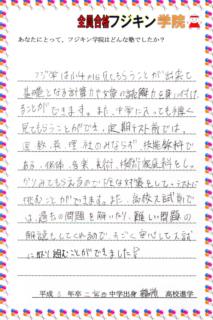 全員合格フジキン学院
あなたにとって、フジキン学院はどんな塾でしたか？
フジ学は小4から見てもらうことが出来て
基礎となる計算力や文章の読解力を身に付け
ることができます。また、中学に入っても手厚く
見てもらうことができ、定期テスト前では、
国、数、英、理、社のみならず技能教科で
ある、保体、音楽、美術、技術、家庭科をし
かりみてもらえるので万全な対策をして、テストに
挑むことができます。また、高校入試前で
は、過去の問題を解いたり、難しい問題の
解説もしてくれるので、すごく安心して入試
に取り組むことができました！
平成 年卒 二宮西中学出身 高校進学